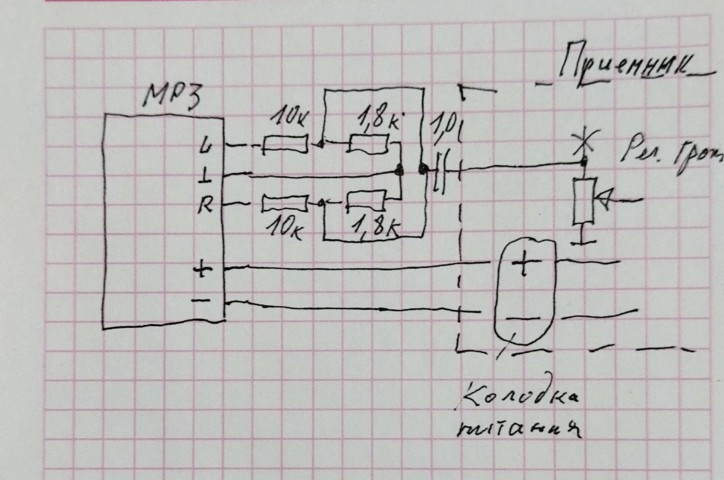 Приемник
МР3
10к
1,8к
1,0
L
⊥
R
Рег. Гром
10к
1,8к
+
+
−
−
Колодка
питания